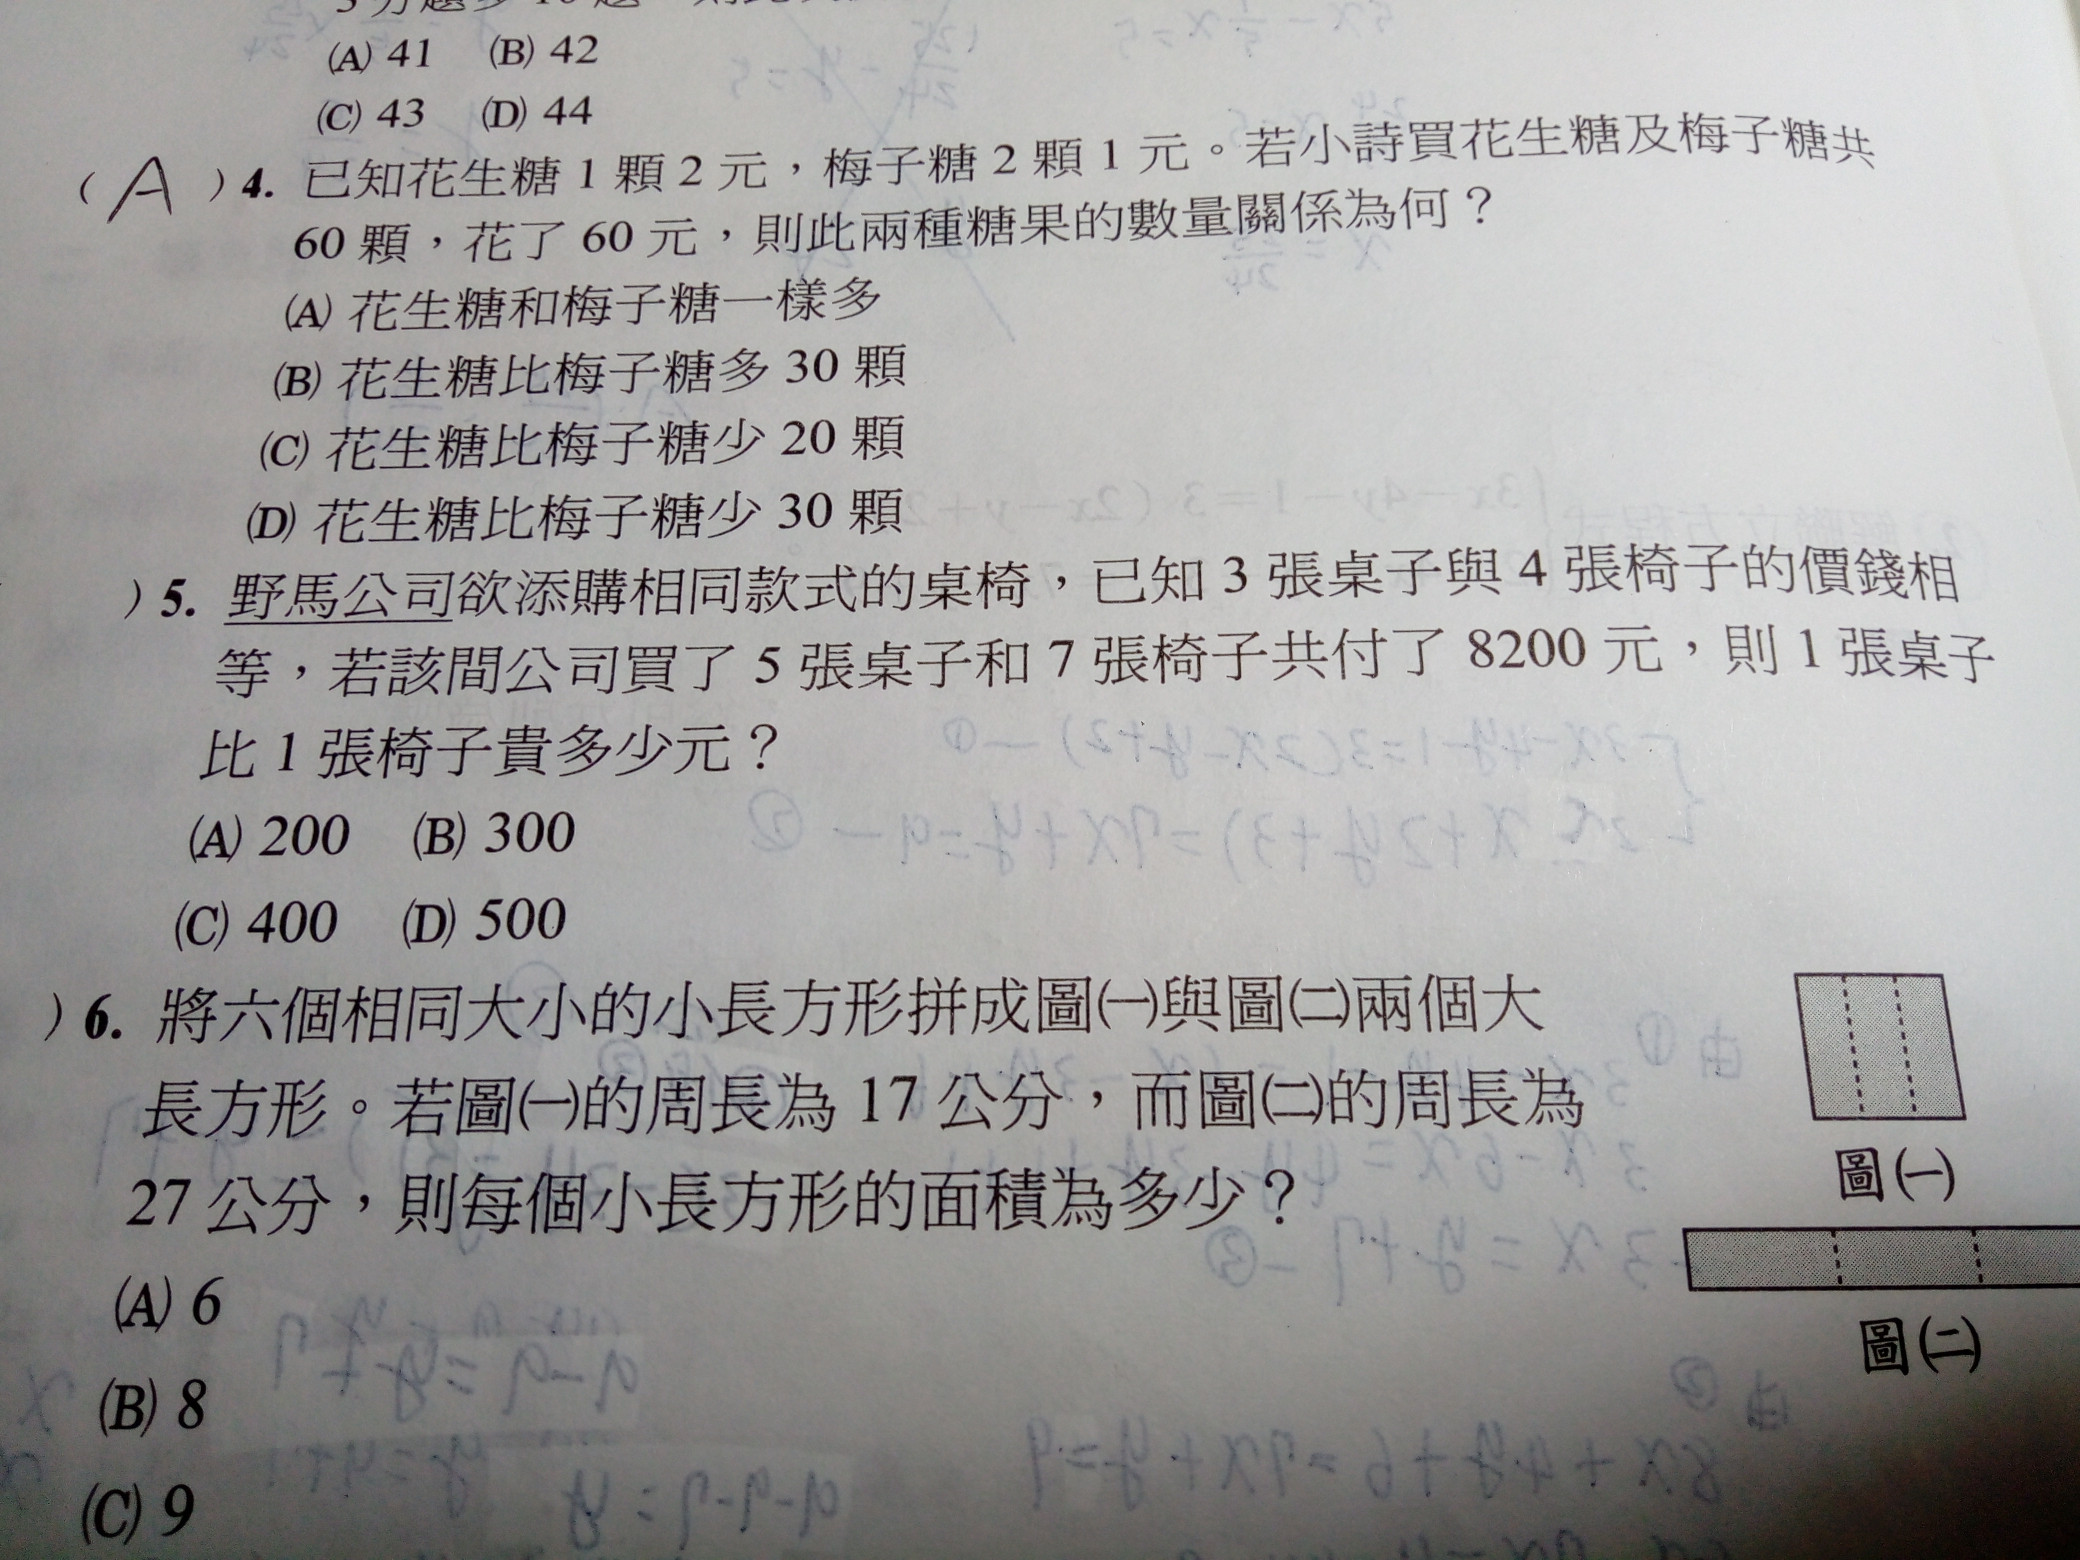 (A) 41 (B) 42
(C) 43 (D) 44
( A ) 4. 已知花生糖 1 顆 2 元，梅子糖 2 顆 1 元。若小詩買花生糖及梅子糖共
60 顆，花了 60 元，則此兩種糖果的數量關係為何？
(A) 花生糖和梅子糖一樣多
(B) 花生糖比梅子糖多 30 顆
(C) 花生糖比梅子糖少 20 顆
(D) 花生糖比梅子糖少 30 顆
) 5. 野馬公司欲添購相同款式的桌椅，已知 3 張桌子與 4 張椅子的價錢相
等，若該間公司買了 5 張桌子和 7 張椅子共付了 8200 元，則 1 張桌子
比 1 張椅子貴多少元？
(A) 200 (B) 300
(C) 400 (D) 500
) 6. 將六個相同大小的小長方形拼成圖㈠與圖㈡兩個大
長方形。若圖㈠的周長為 17 公分，而圖㈡的周長為
27 公分，則每個小長方形的面積為多少？
(A) 6
(B) 8
(C) 9
圖㈠
圖㈡